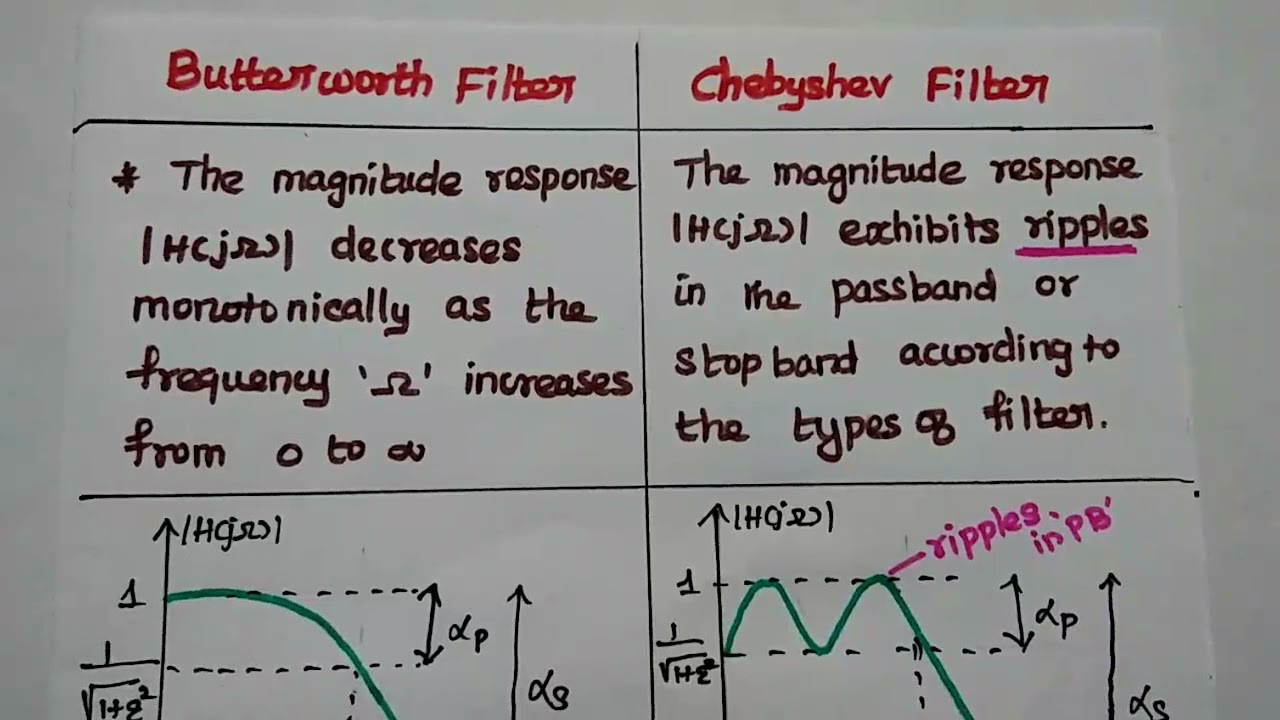 Butterworth Filter
* The magnitude response
|H(jΩ)| decreases
monotonically as the
frequency 'Ω' increases
from 0 to ∞
Chebyshev Filter
The magnitude response
|H(jΩ)| exhibits ripples
in the passband or
stopband according to
the types of filter.
|H(jΩ)|
1
αp
1/√1+ε²
αs
|H(jΩ)|
ripples in 'PB'
1
αp
1/√1+ε²
αs